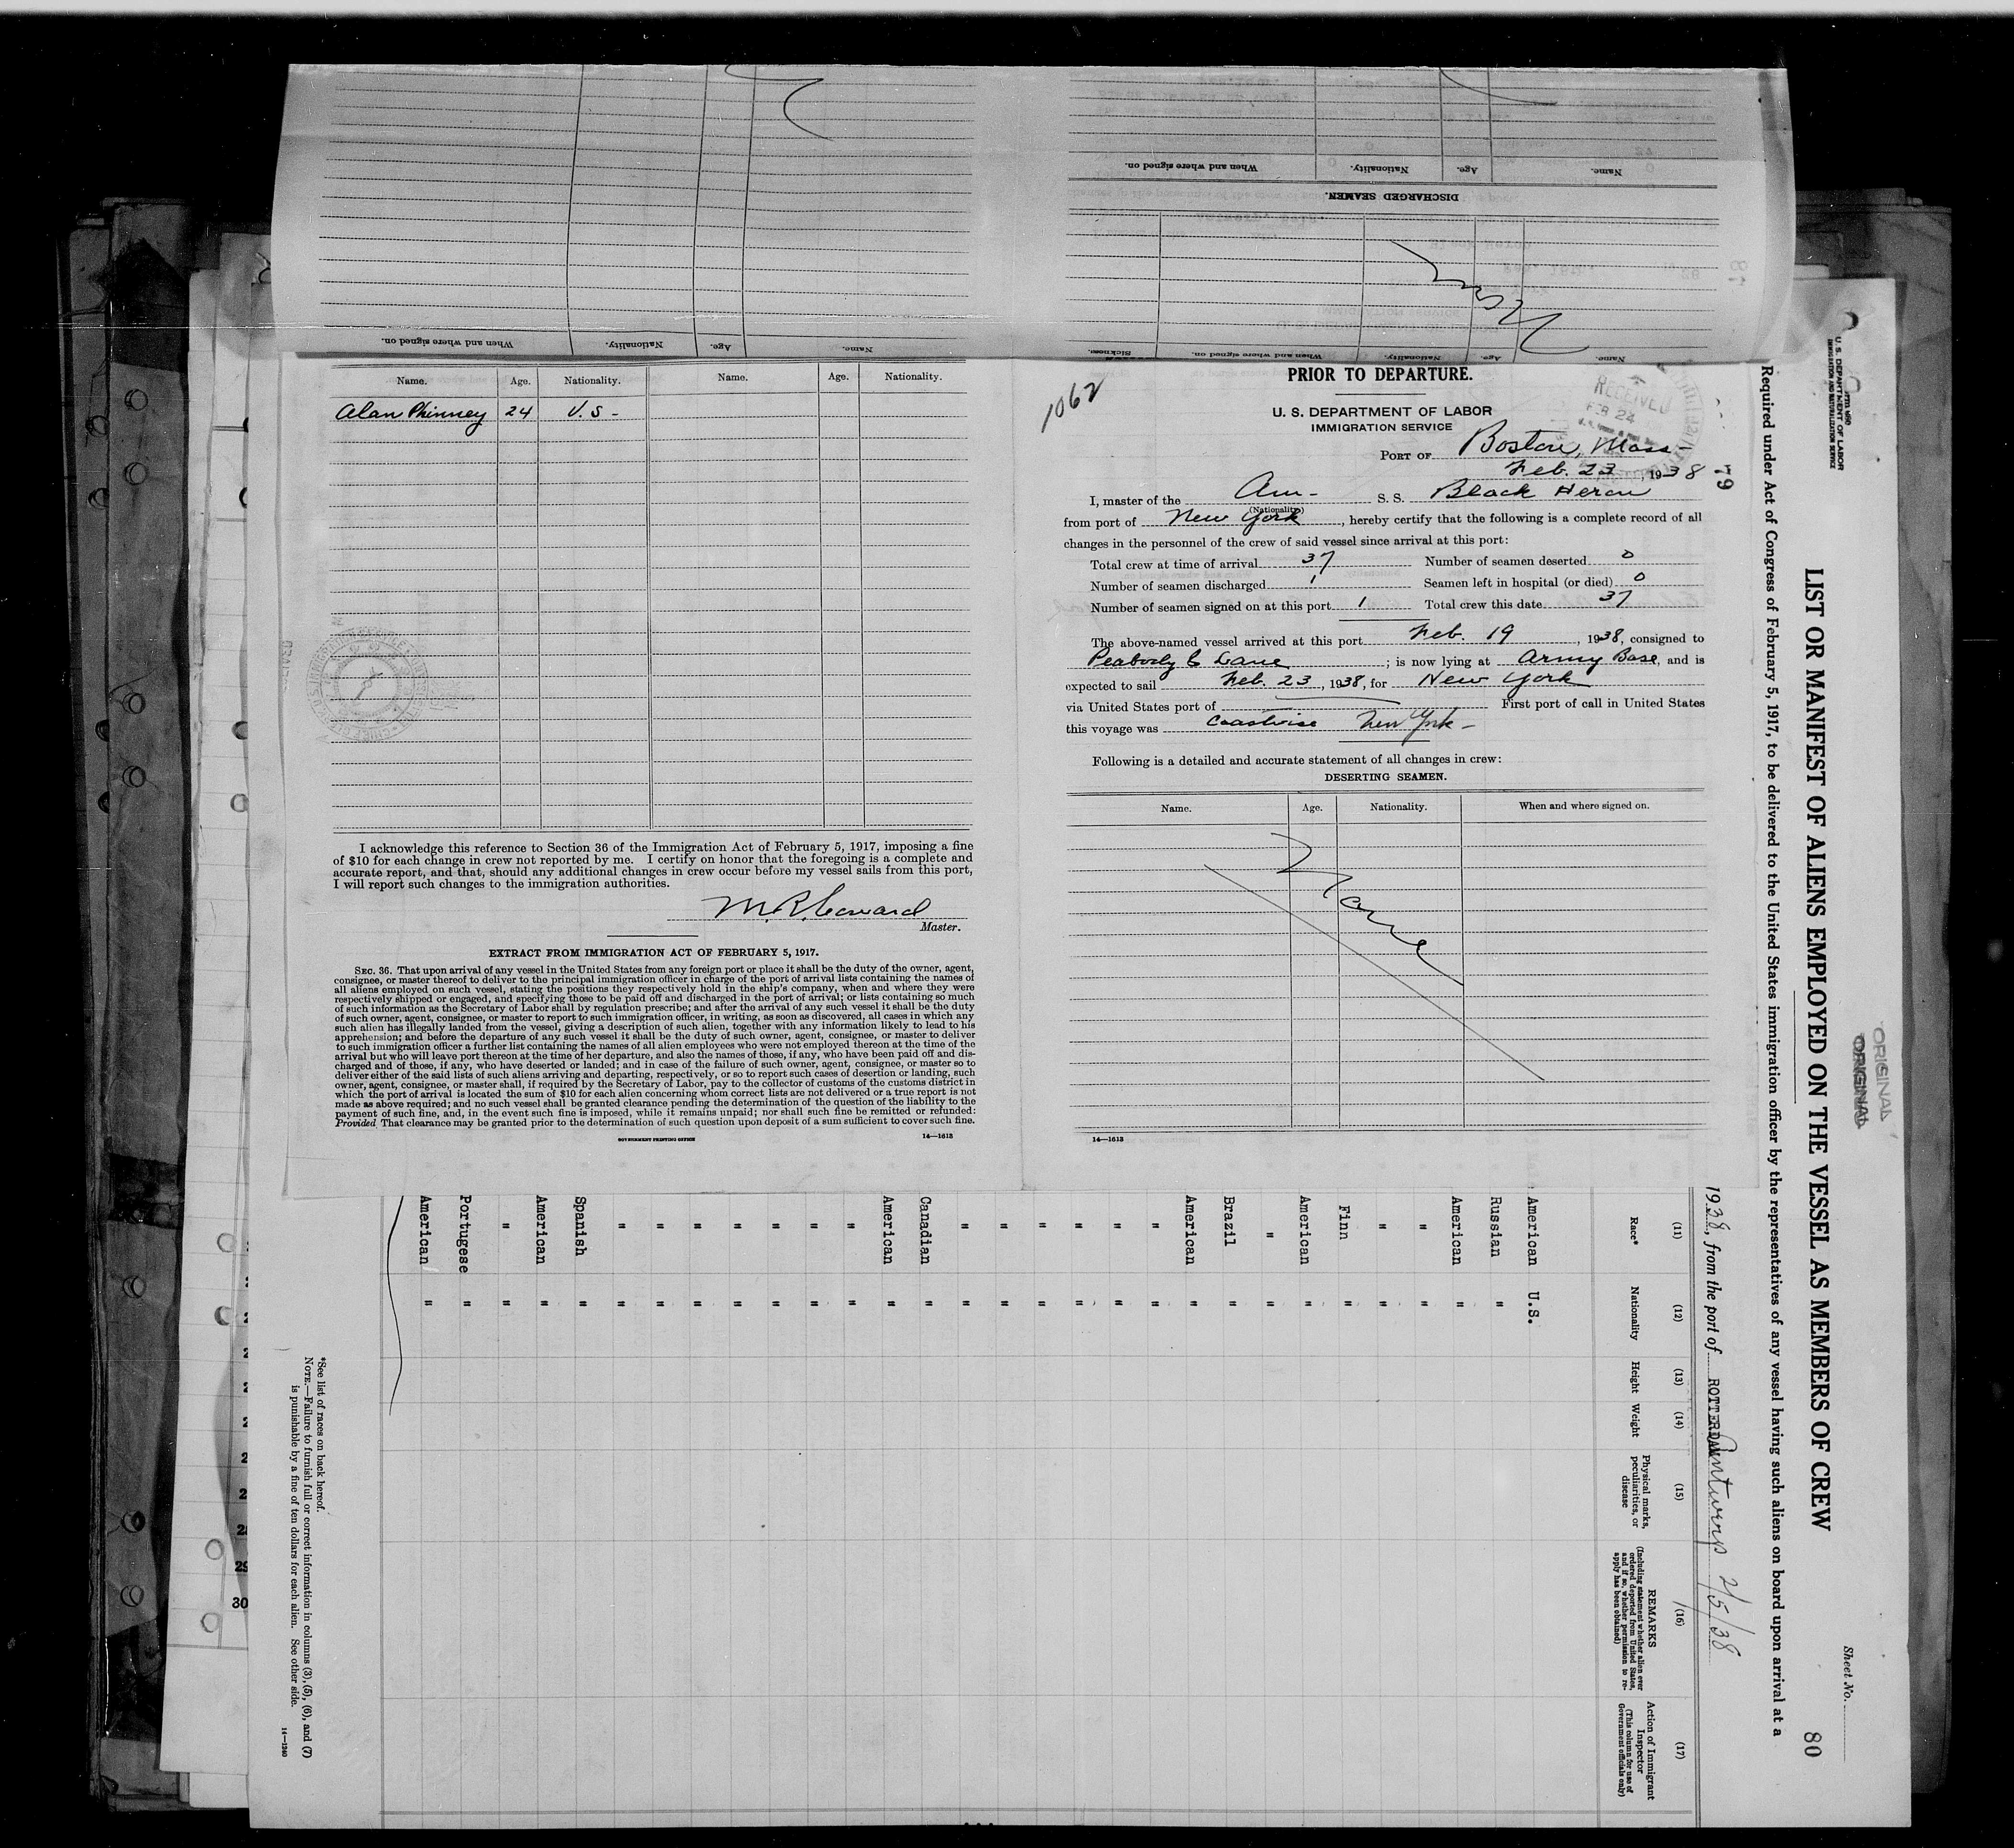 When and where signed on.
Nationality.
Age.
Name.
When and where signed on.
Nationality.
Age.
Name.
DISCHARGED SEAMEN.
Sickness.
When and where signed on.
Nationality.
Age.
Name.
Name. Age. Nationality. Name. Age. Nationality.
Alan Phinney 24 U.S -
I acknowledge this reference to Section 36 of the Immigration Act of February 5, 1917, imposing a fine
of $10 for each change in crew not reported by me. I certify on honor that the foregoing is a complete and
accurate report, and that, should any additional changes in crew occur before my vessel sails from this port,
I will report such changes to the immigration authorities.
M. R. Coward
Master.
EXTRACT FROM IMMIGRATION ACT OF FEBRUARY 5, 1917.
SEC. 36. That upon arrival of any vessel in the United States from any foreign port or place it shall be the duty of the owner, agent,
consignee, or master thereof to deliver to the principal immigration officer in charge of the port of arrival lists containing the names of
all aliens employed on such vessel, stating the positions they respectively hold in the ship's company, when and where they were
respectively shipped or engaged, and specifying those to be paid off and discharged in the port of arrival; or lists containing so much
of such information as the Secretary of Labor shall by regulation prescribe; and after the arrival of any such vessel it shall be the duty
of such owner, agent, consignee, or master to report to such immigration officer, in writing, as soon as discovered, all cases in which any
such alien has illegally landed from the vessel, giving a description of such alien, together with any information likely to lead to his
apprehension; and before the departure of any such vessel it shall be the duty of such owner, agent, consignee, or master to deliver
to such immigration officer a further list containing the names of all alien employees who were not employed thereon at the time of the
arrival but who will leave port thereon at the time of her departure, and also the names of those, if any, who have been paid off and dis-
charged and of those, if any, who have deserted or landed; and in case of the failure of such owner, agent, consignee, or master so to
deliver either of the said lists of such aliens arriving and departing, respectively, or so to report such cases of desertion or landing, such
owner, agent, consignee, or master shall, if required by the Secretary of Labor, pay to the collector of customs of the customs district in
which the port of arrival is located the sum of $10 for each alien concerning whom correct lists are not delivered or a true report is not
made as above required; and no such vessel shall be granted clearance pending the determination of the question of the liability to the
payment of such fine, and, in the event such fine is imposed, while it remains unpaid; nor shall such fine be remitted or refunded:
Provided That clearance may be granted prior to the determination of such question upon deposit of a sum sufficient to cover such fine.
GOVERNMENT PRINTING OFFICE 14—1613
1062
PRIOR TO DEPARTURE.
RECEIVED
FEB 24
U. S. DEPARTMENT OF LABOR
IMMIGRATION SERVICE
PORT OF Boston, Mass-
Feb. 23, 1938
79
I, master of the Am- S. S. Black Heron
(Nationality)
from port of New York, hereby certify that the following is a complete record of all
changes in the personnel of the crew of said vessel since arrival at this port:
Total crew at time of arrival 37 Number of seamen deserted 0
Number of seamen discharged 1 Seamen left in hospital (or died) 0
Number of seamen signed on at this port 1 Total crew this date 37
The above-named vessel arrived at this port Feb. 19, 1938, consigned to
Peabody & Lane; is now lying at Army Base, and is
expected to sail Feb. 23, 1938, for New York
via United States port of First port of call in United States
this voyage was Coastwise New York -
Following is a detailed and accurate statement of all changes in crew:
DESERTING SEAMEN.
Name. Age. Nationality. When and where signed on.
None
14—1613
U. S. DEPARTMENT OF LABOR
IMMIGRATION AND NATURALIZATION SERVICE
ORIGINAL
ORIGINAL
Sheet No.
80
LIST OR MANIFEST OF ALIENS EMPLOYED ON THE VESSEL AS MEMBERS OF CREW
Required under Act of Congress of February 5, 1917, to be delivered to the United States immigration officer by the representatives of any vessel having such aliens on board upon arrival at a
1938, from the port of ROTTERDAM Antwerp 2/5/38
(11) (12) (13) (14) (15) (16) (17)
Race* Nationality Height Weight Physical marks, peculiarities, or disease
REMARKS
(Including statement whether alien ever ordered deported from United States, and if so, whether permission to re-apply has been obtained)
Action of Immigrant Inspector
(This column for use of Government officials only)
American U.S.
Russian "
American "
" "
" "
Finn "
American "
" "
Brazil "
American "
" "
" "
" "
" "
" "
" "
Canadian "
American "
" "
" "
" "
" "
" "
" "
" "
Spanish "
American "
" "
Portugese "
American "
*See list of races on back hereof.
NOTE.—Failure to furnish full or correct information in columns (3), (5), (6), and (7)
is punishable by a fine of ten dollars for each alien. See other side.
14—1240
29
30